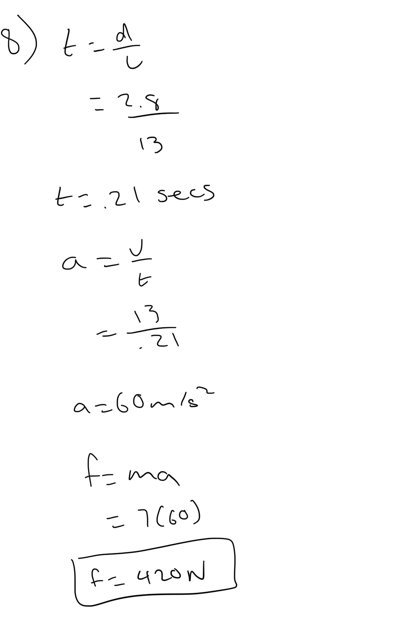 8) t = d/v
= 2.8/13
t = .21 secs
a = v/t
= 13/.21
a = 60 m/s²
f = ma
= 7(60)
f = 420 N